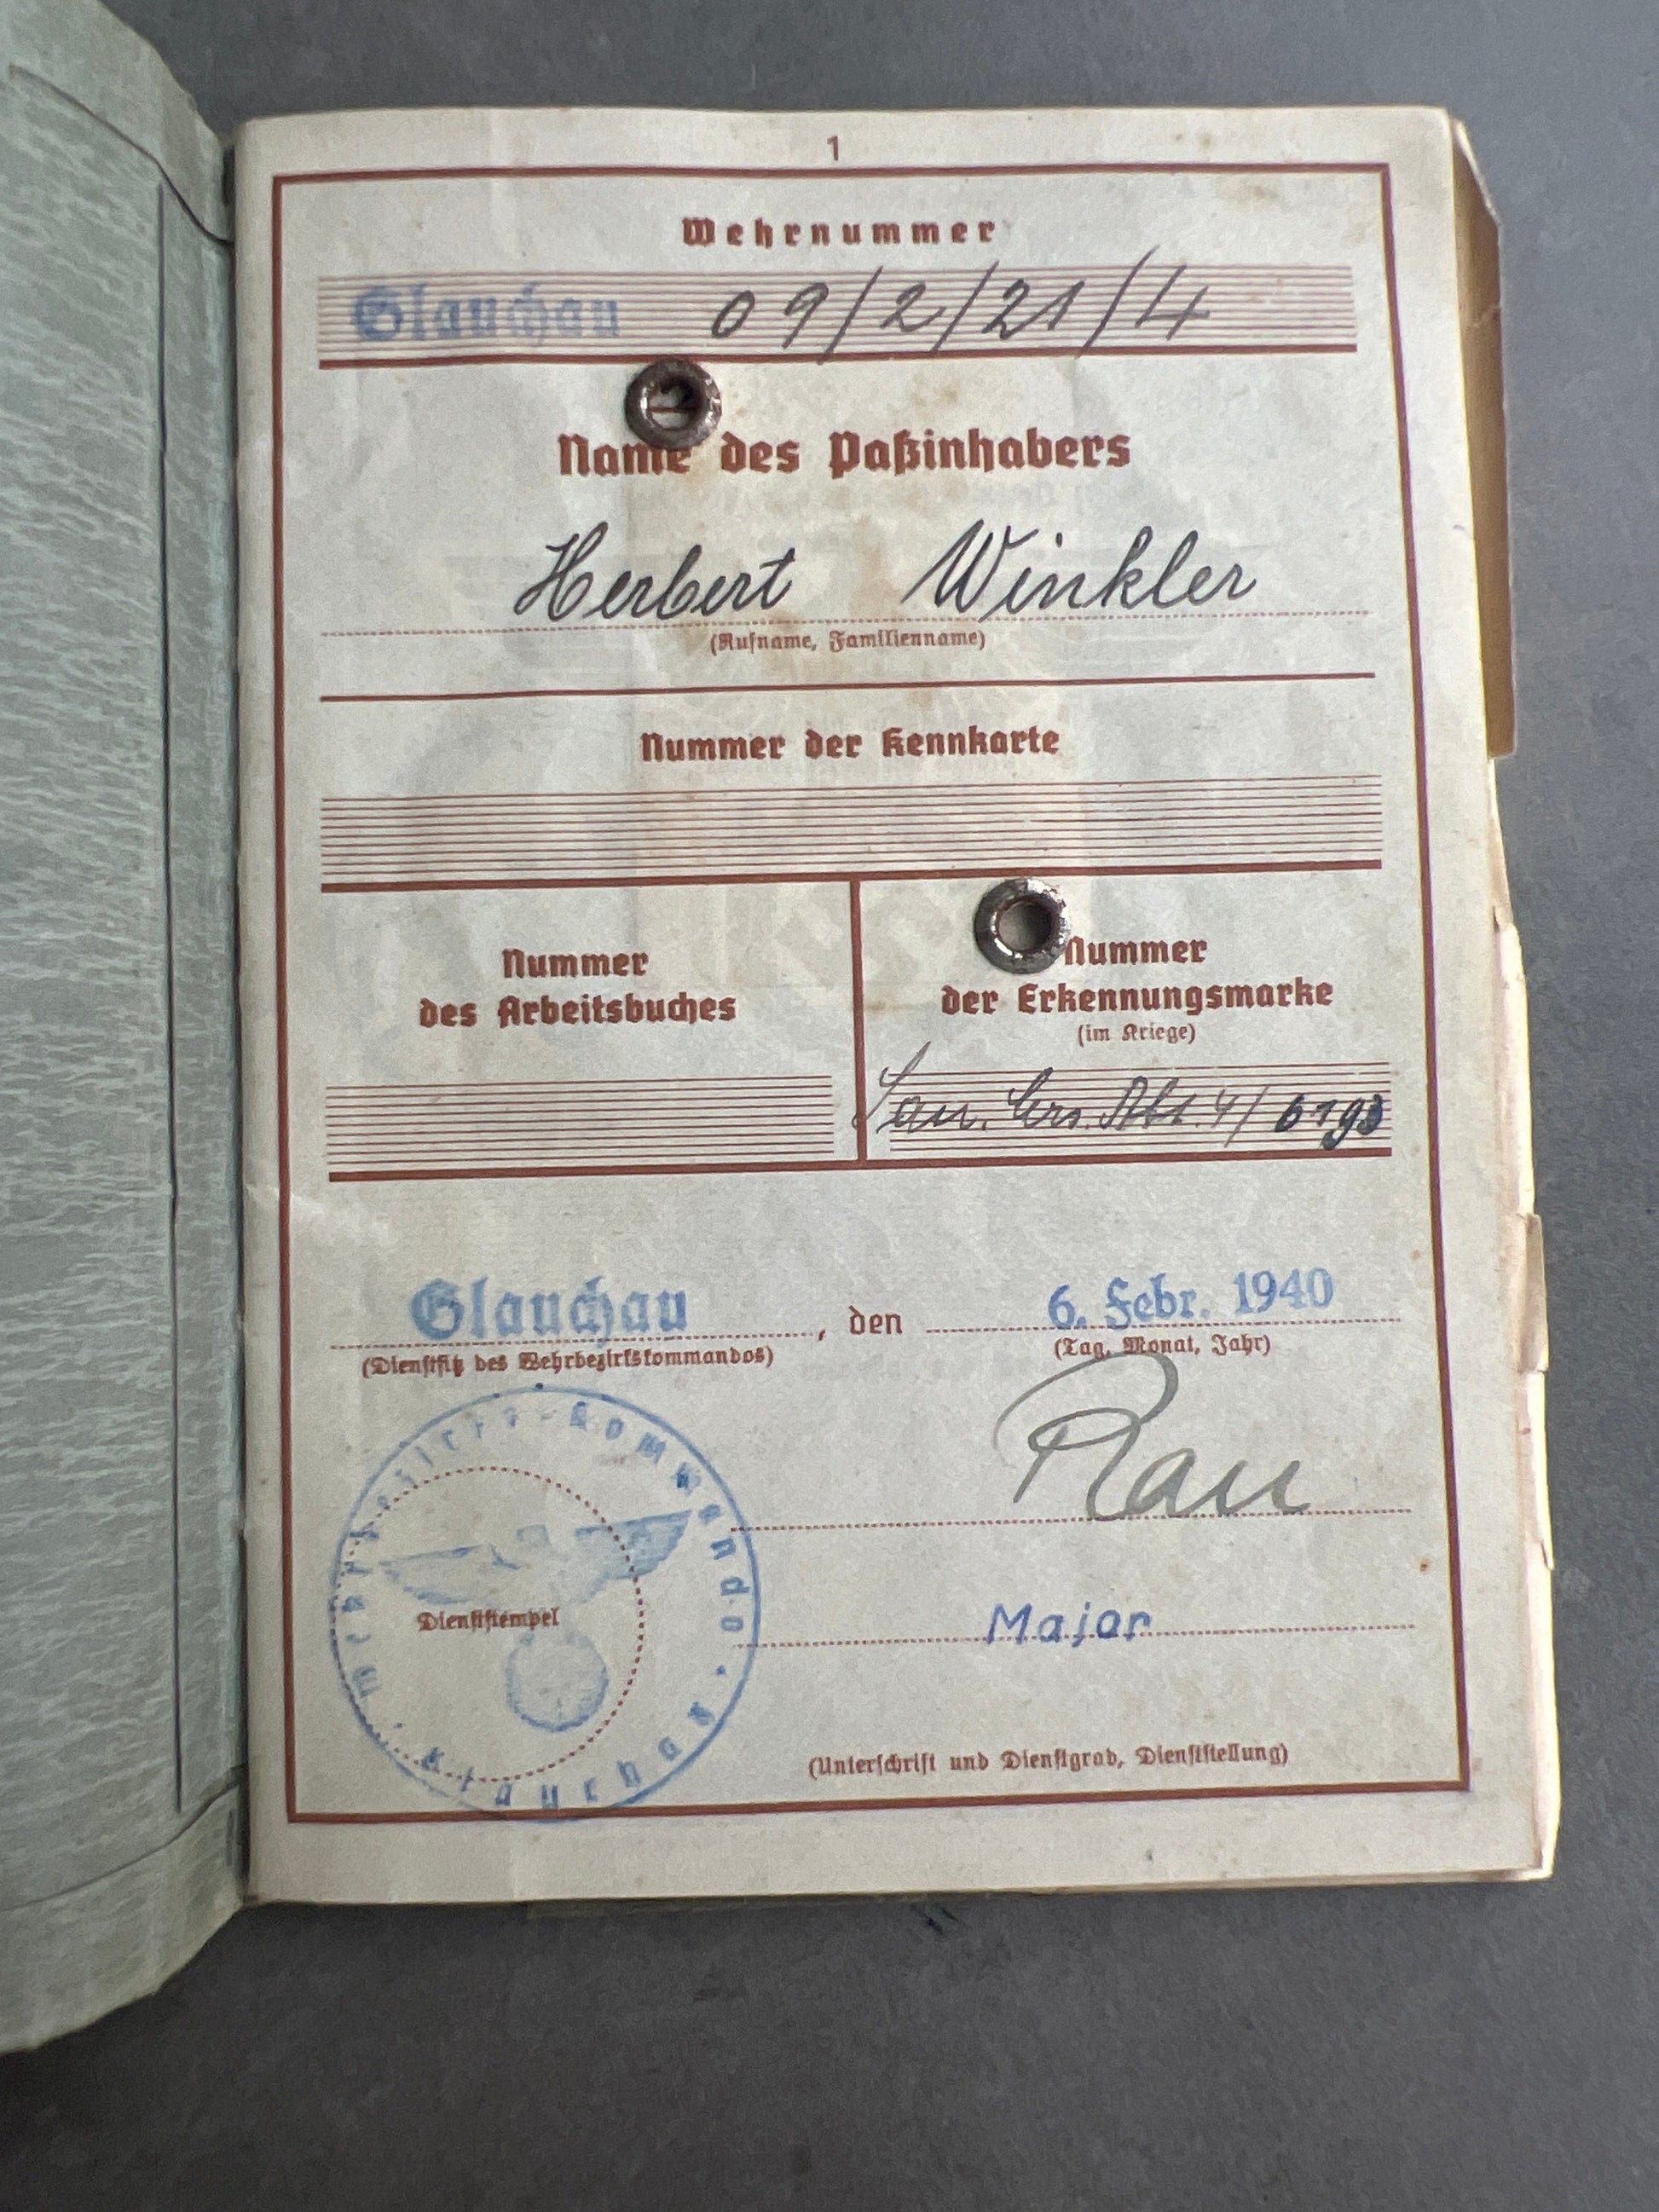 1
Wehrnummer
Glauchau 09/2/21/4
Name des Paßinhabers
Herbert Winkler
(Rufname, Familienname)
Nummer der Kennkarte
Nummer
des Arbeitsbuches
Nummer
der Erkennungsmarke
(im Kriege)
San. Ers. Abt. 4/ 6193
Glauchau, den 6. Febr. 1940
(Dienstsitz des Wehrbezirkskommandos) (Tag, Monat, Jahr)
Rau
Wehrbezirks-Kommando
Dienststempel
Major
(Unterschrift und Dienstgrad, Dienststellung)